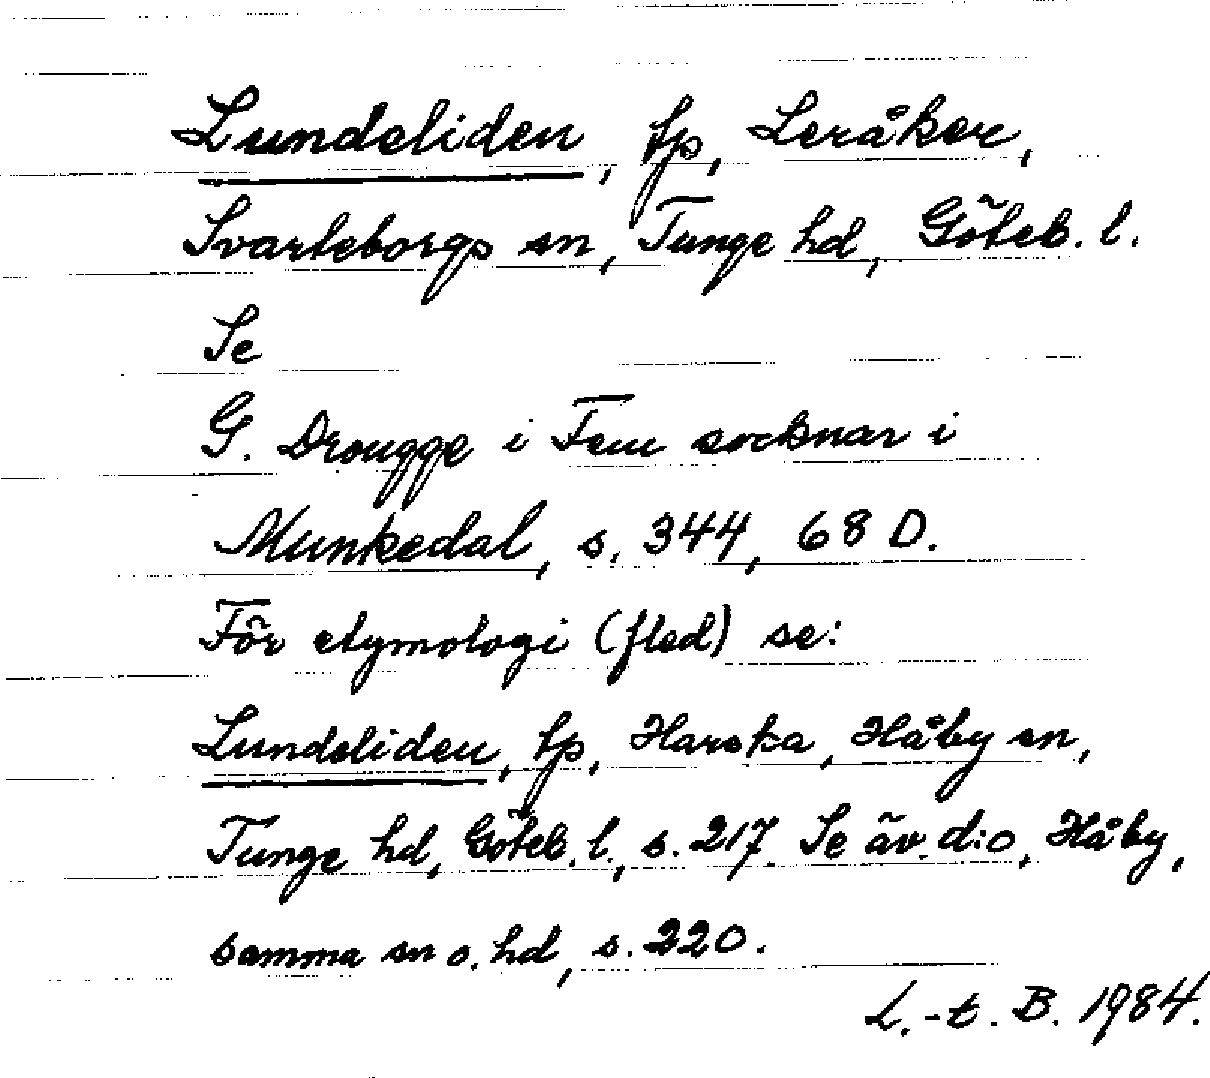 Lundeliden, tp, Leråker,
Svarteborgs sn, Tunge hd, Göteb. l.
Se
G. Drougge i Fem socknar i
Munkedal, s. 344, 68 D.
För etymologi (fled) se:
Lundeliden, tp, Harska, Håby sn,
Tunge hd, Göteb. l., s. 217. Se äv. d:o, Håby,
samma sn o. hd, s. 220.
L.-t. B. 1984.